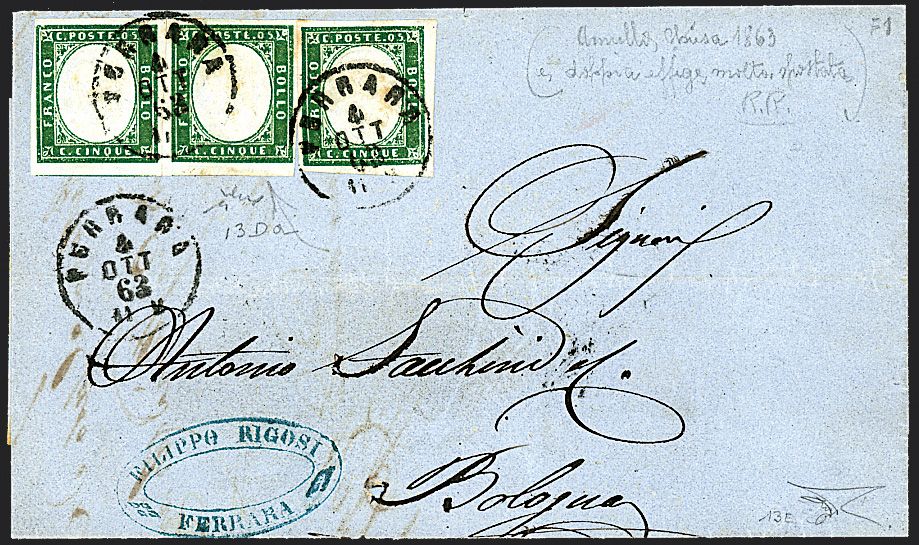 C. POSTE. 05
FRANCO
BOLLO
C. CINQUE
C. POSTE. 05
FRANCO
BOLLO
C. CINQUE
C. POSTE. 05
FRANCO
BOLLO
C. CINQUE
FERRARA
4
OTT
63
FERRARA
4
OTT
63
FERRARA
4
OTT
63
1863
e, doppia effige, molto spostata
R.R.
13Da
Signori
Antonio Sacchini &C.
Bologna
FILIPPO RIGOSI
FERRARA
13E